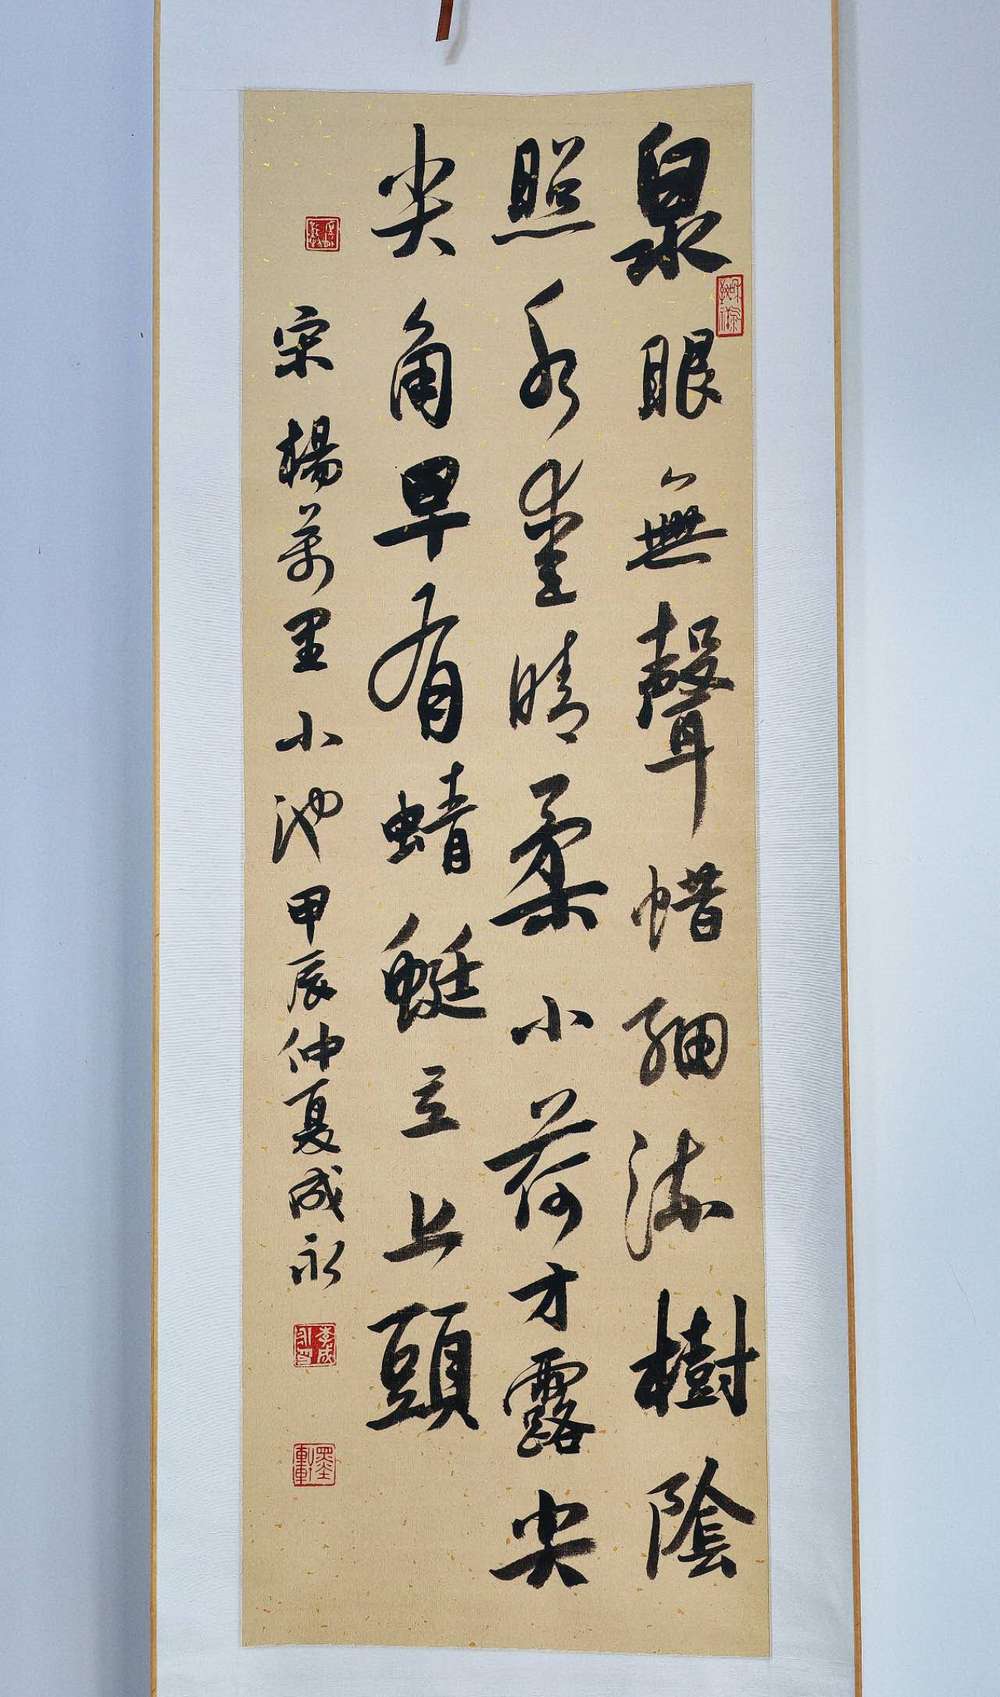 泉眼無聲惜細流樹陰
照水愛晴柔小荷才露尖
尖角早有蜻蜓立上頭
宋楊萬里小池甲辰仲夏成永
李成永印
墨軒